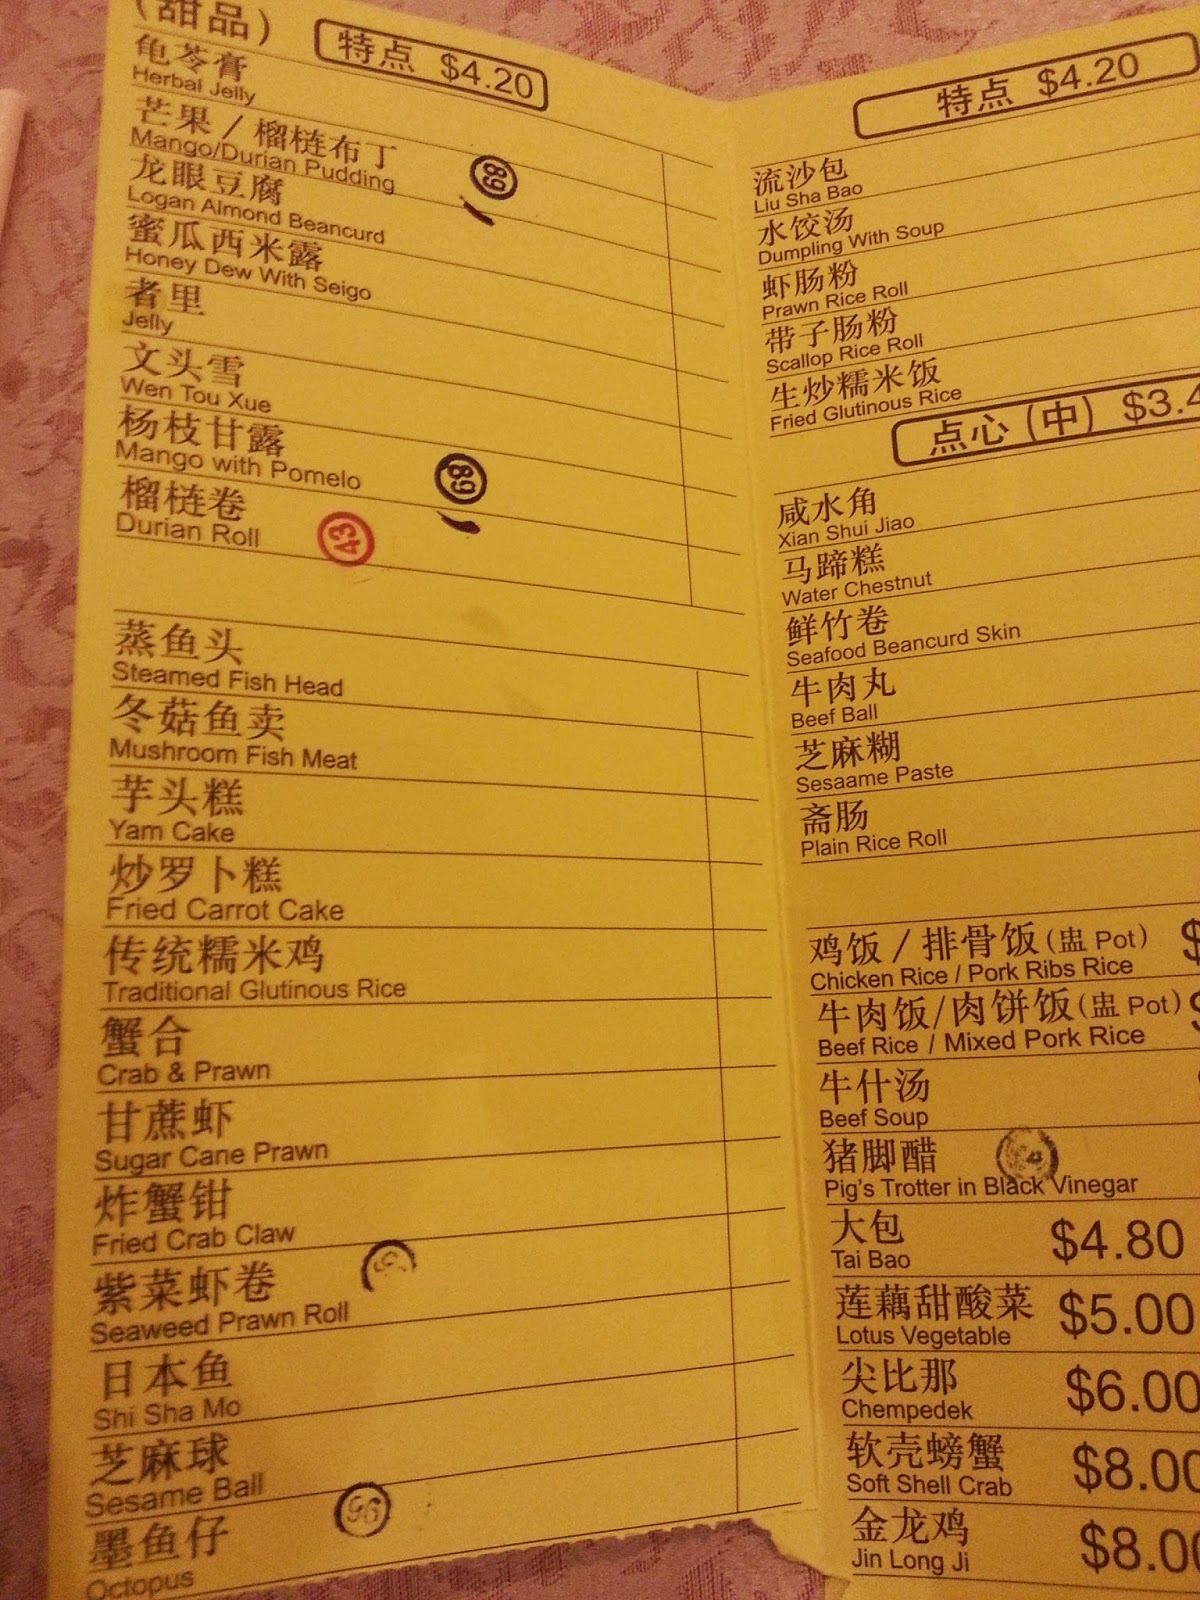 (甜品)
特点 $4.20
龟苓膏
Herbal Jelly
芒果 / 榴梿布丁
Mango/Durian Pudding
89
龙眼豆腐
Logan Almond Beancurd
蜜瓜西米露
Honey Dew With Seigo
者里
Jelly
文头雪
Wen Tou Xue
杨枝甘露
Mango with Pomelo
89
榴梿卷
Durian Roll
43
蒸鱼头
Steamed Fish Head
冬菇鱼卖
Mushroom Fish Meat
芋头糕
Yam Cake
炒罗卜糕
Fried Carrot Cake
传统糯米鸡
Traditional Glutinous Rice
蟹合
Crab & Prawn
甘蔗虾
Sugar Cane Prawn
炸蟹钳
Fried Crab Claw
紫菜虾卷
Seaweed Prawn Roll
日本鱼
Shi Sha Mo
芝麻球
Sesame Ball
墨鱼仔
Octopus
96
特点 $4.20
流沙包
Liu Sha Bao
水饺汤
Dumpling With Soup
虾肠粉
Prawn Rice Roll
带子肠粉
Scallop Rice Roll
生炒糯米饭
Fried Glutinous Rice
点心 (中) $3.4
咸水角
Xian Shui Jiao
马蹄糕
Water Chestnut
鲜竹卷
Seafood Beancurd Skin
牛肉丸
Beef Ball
芝麻糊
Sesaame Paste
斋肠
Plain Rice Roll
鸡饭 / 排骨饭 (盅 Pot) $
Chicken Rice / Pork Ribs Rice
牛肉饭/肉饼饭 (盅 Pot) $
Beef Rice / Mixed Pork Rice
牛什汤
Beef Soup
猪脚醋
Pig's Trotter in Black Vinegar
大包 $4.80
Tai Bao
莲藕甜酸菜 $5.00
Lotus Vegetable
尖比那 $6.00
Chempedek
软壳螃蟹 $8.00
Soft Shell Crab
金龙鸡 $8.00
Jin Long Ji